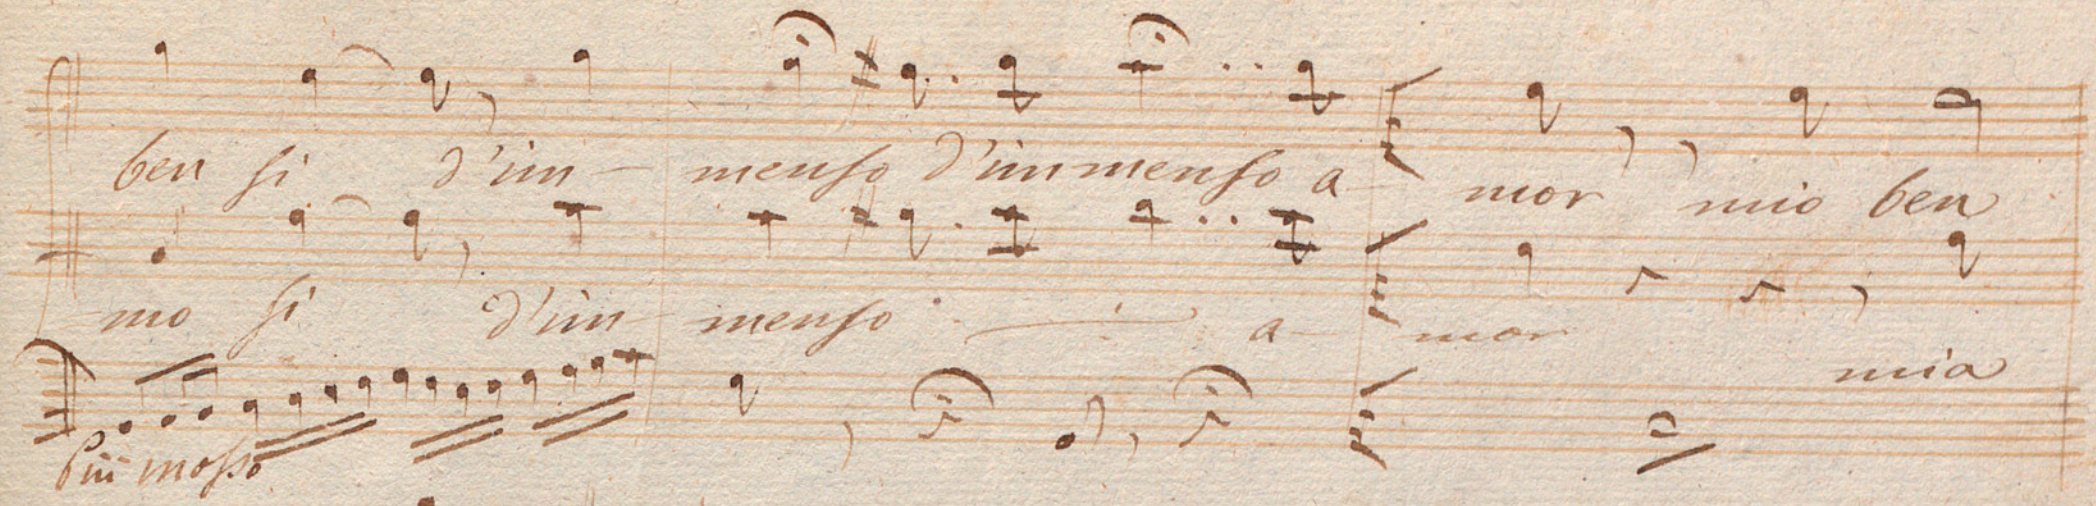 ben si d'im - menso d'immenso a - mor mio ben
mo si d'im - menso a - mor mia
Più mosso